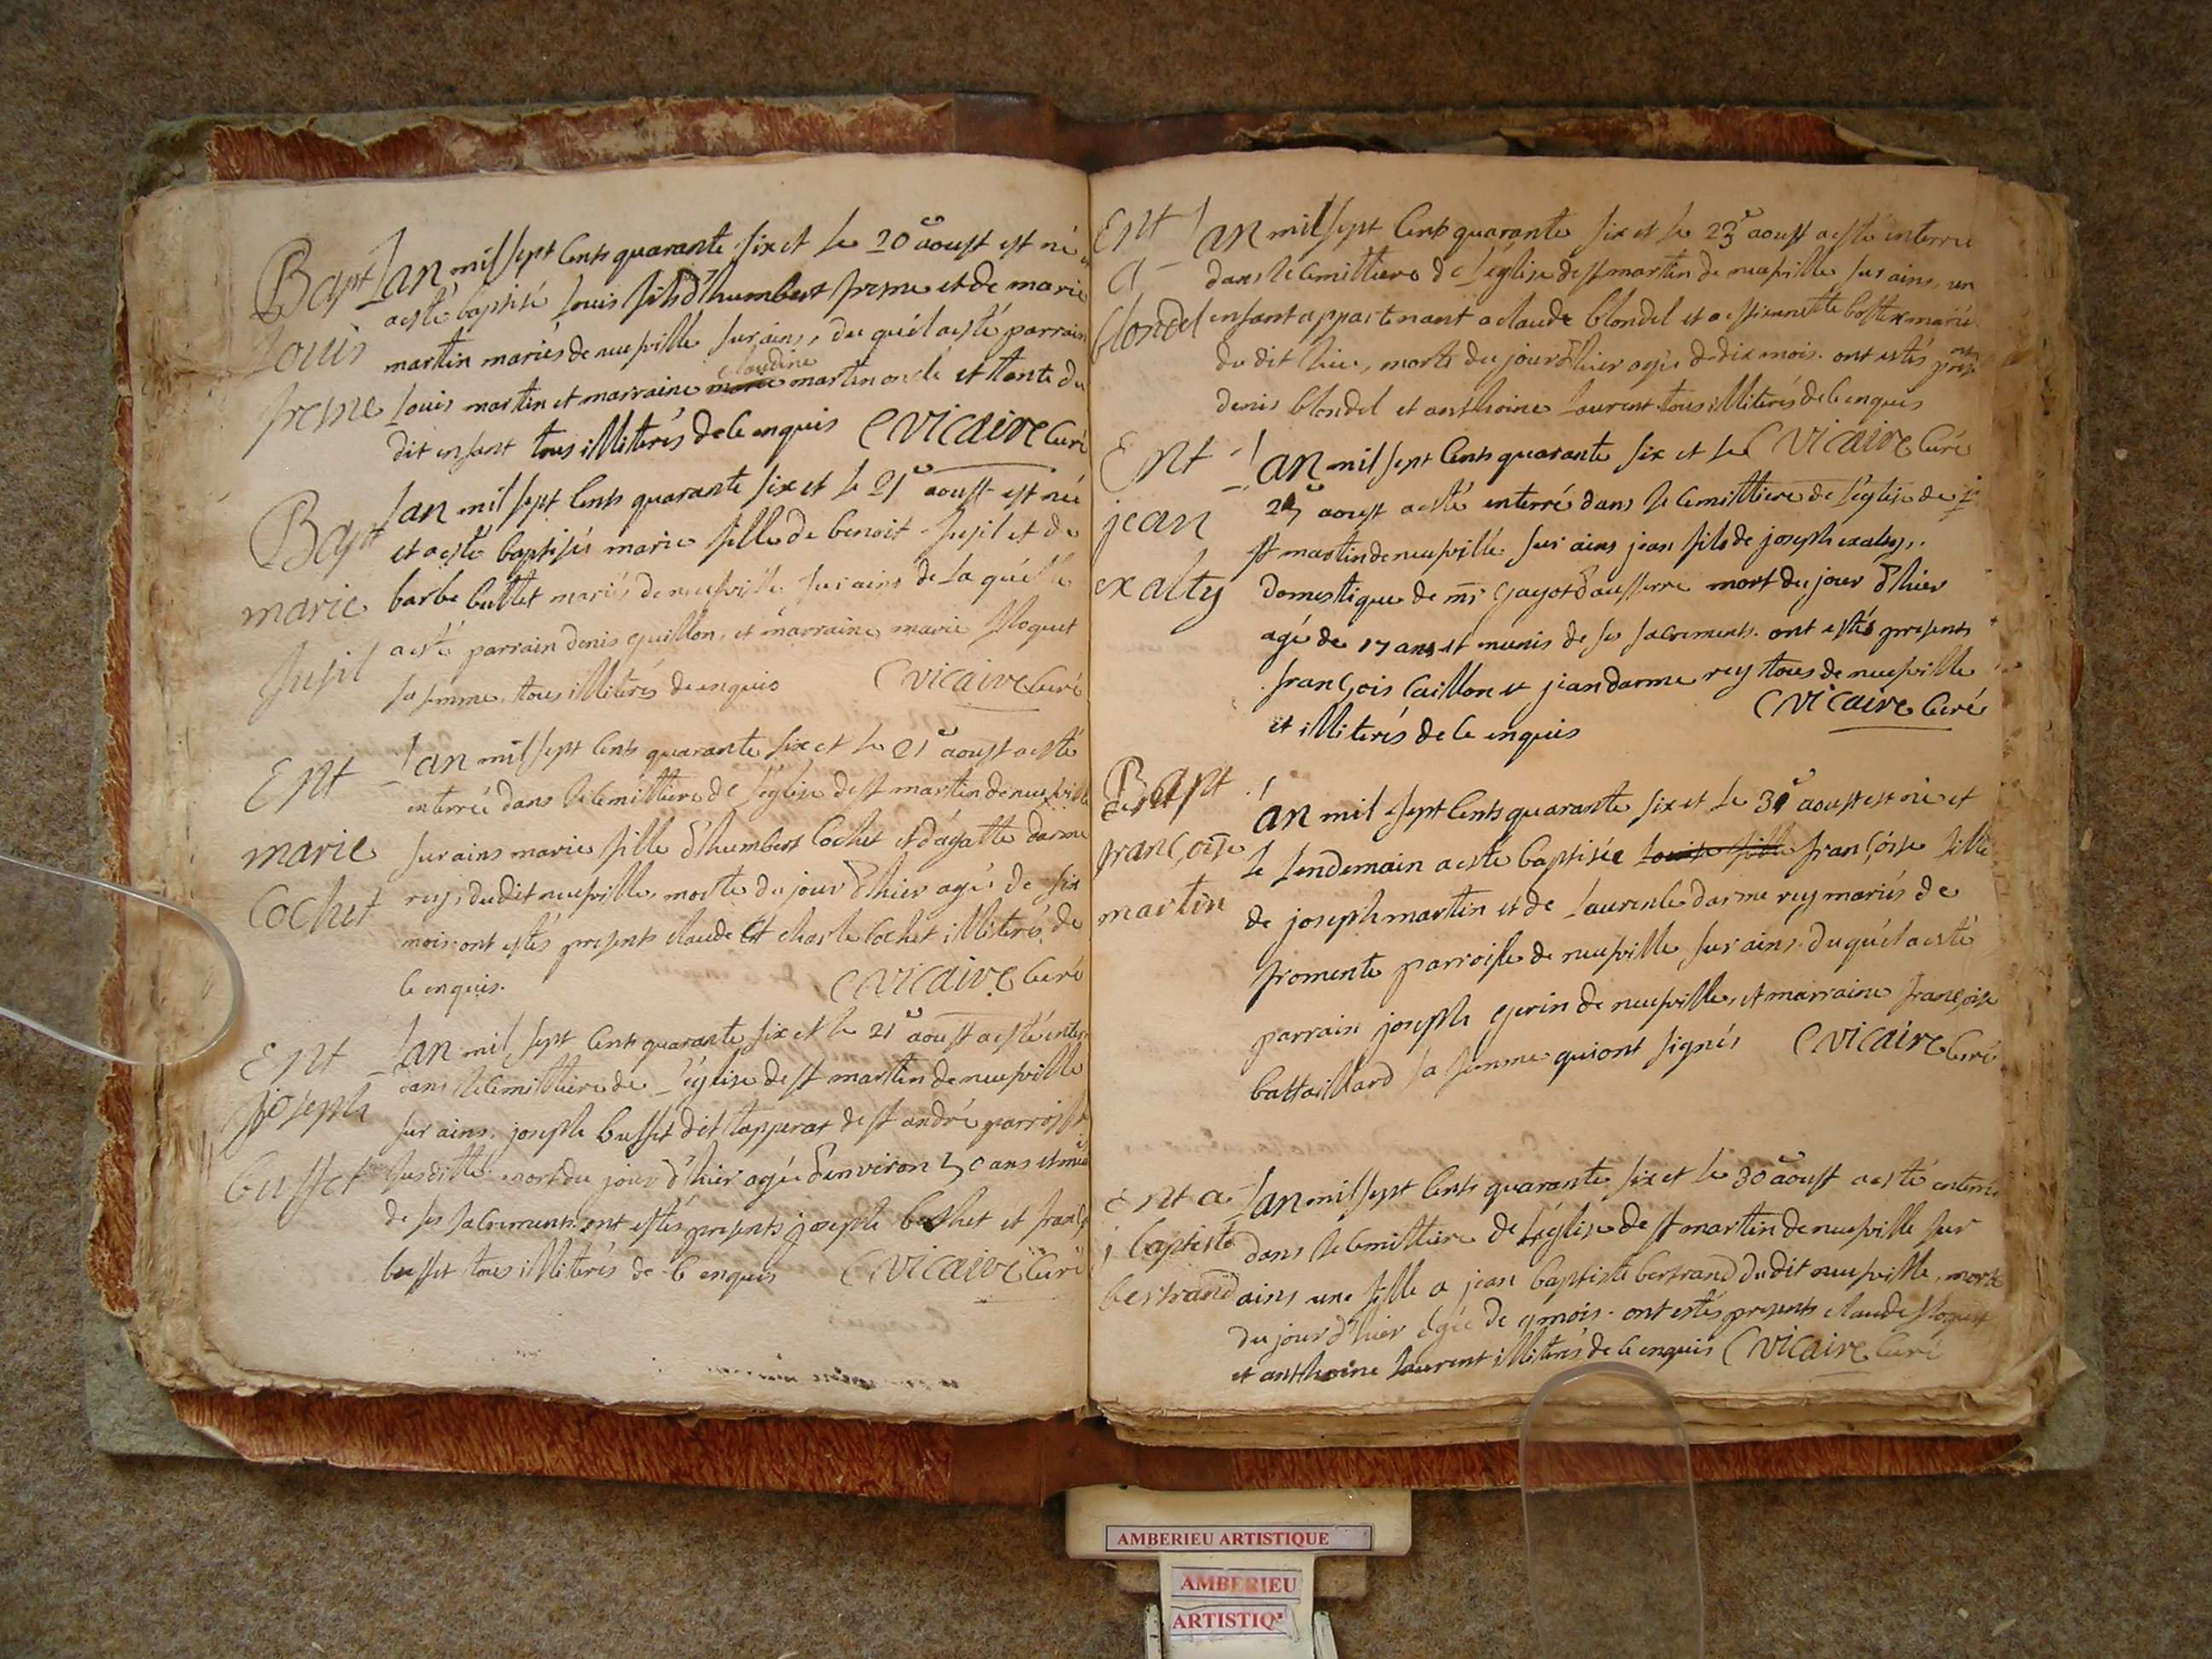 Bapt
Louis
preme
L'an mil sept cents quarante six et le 20e aoust est né
a esté baptisé louis fils d'humbert preme et de marie
martin mariés de neufville sur ains, du quél a esté parrain
claudine
Louis martin et marraine marie martin oncle et tante du
dit enfant tous illiterés de ce enquis C vicaire curé
Bapt
marie
L'an mil sept cents quarante six et le 21e aoust est née
et a esté baptisée marie fille de benoit et de
barbe buttet mariés de neufville sur ains de la quélle
a esté parrain denis guillon, et marraine marie floquet
sa femme, tous illiterés de enquis C vicaire curé
Ent
marie
Cochet
L'an mil sept cents quarante six et le 21e aoust a esté
enterrée dans le cemittiere de l'église de st martin de neufville
sur ains marie fille d'humbert Cochet et d'agatte darme
rey, du dit neufville, morte du jour d'hier agée de six
mois. ont estés presents claude et charle Cochet illiterés de
ce enquis. C vicaire curé
Ent
joseph
buffet
L'an mil sept cents quarante six et le 21e aoust a esté enter
dans le cemittiere de l'église de st martin de neufville
sur ains, joseph buffet dit tapperat de st andré parroisse
susditte mort du jour d'hier agée d'environ 50 ans et muni
de ses sacrements. ont estés presents joseph bochet et franç
buffet tous illiterés de ce enquis C vicaire curé
Ent
a
blondel
L'an mil sept cents quarante six et le 23e aoust a esté enterré
dans le cemittiere de l'église de st martin de neufville sur ains, un
enfant appartenant a claude blondel et a pierrenette mariés
du dit lieu, morte du jour d'hier agée de dix mois. ont estés presents
denis blondel et anthoine laurent tous illiterés de ce enquis
C vicaire curé
Ent
jean
exalty
L'an mil sept cents quarante six et le
aoust a esté enterré dans le cemittiere de l'église de
st martin de neufville sur ains jean fils de joseph exalty,
domestique de mr gayot d'aufferre mort du jour d'hier
agé de 17 ans et munis de ses sacrements. ont estés presents
françois Caillon et jean darme rey tous de neufville
et illiterés de ce enquis C vicaire curé
Bapt
françoise
martin
L'an mil sept cents quarante six et le aoust est née et
le lendemain a esté baptisée louise fille françoise fille
de joseph martin et de laurence darme rey mariés de
fromente parroisse de neufville sur ains. du quél a esté
parrain joseph gerin de neufville, et marraine françoise
battaillard sa femme qui ont signés C vicaire curé
Ent a
j baptiste
bertrand
L'an mil sept cents quarante six et le 30e aoust a esté enterré
dans le cemittiere de l'église de st martin de neufville sur
ains une fille a jean baptiste bertrand du dit neufville, morte
du jour d'hier agée de 9 mois. ont estés presents claude floquet
et anthoine laurent illiterés de ce enquis C vicaire curé
AMBERIEU ARTISTIQUE
AMBERIEU
ARTISTIQ